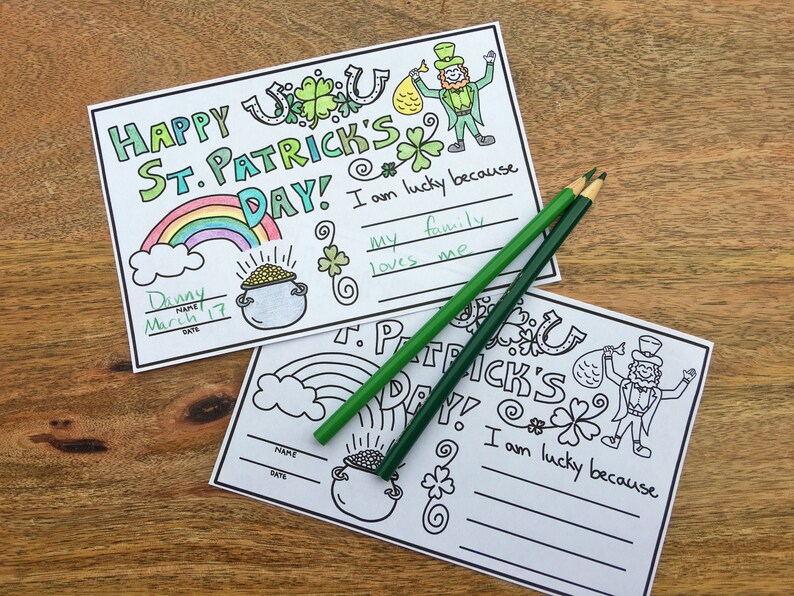 HAPPY
ST. PATRICK'S
DAY!
I am lucky because
my family
loves me
Danny
NAME
March 17
DATE
T. PATRICK'S
DAY!
I am lucky because
NAME
DATE